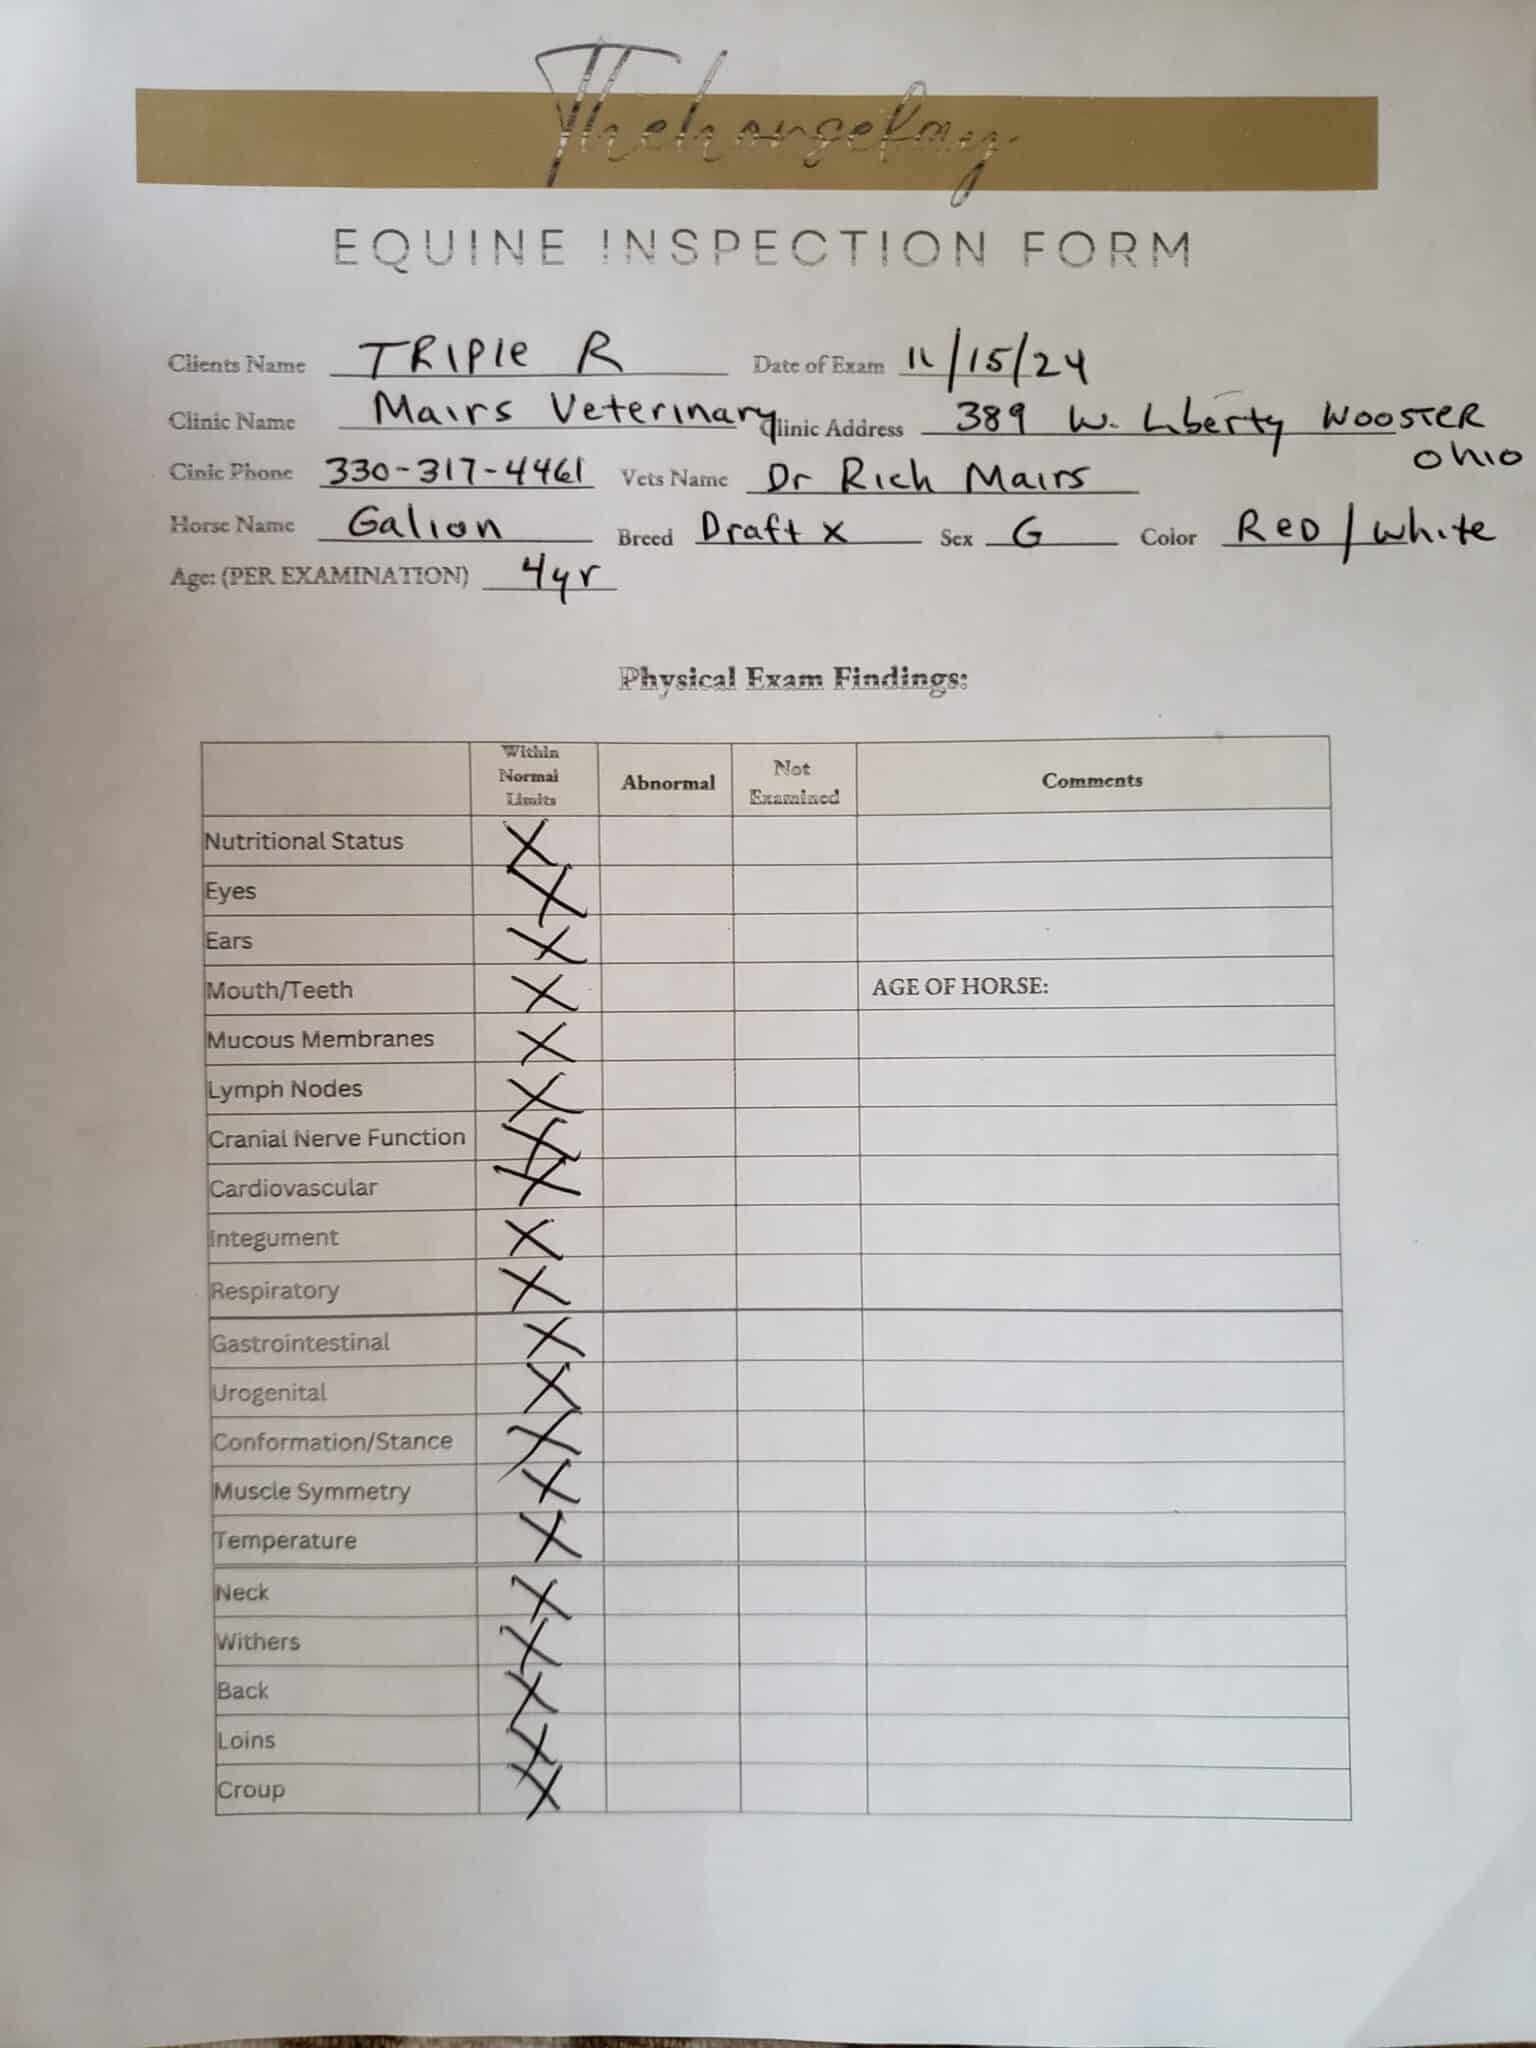 Thehorsebay
EQUINE INSPECTION FORM
Clients Name TRIPle R Date of Exam 11/15/24
Clinic Name Mairs Veterinary Clinic Address 389 W. Liberty WOOSTER
Ohio
Cinic Phone 330-317-4461 Vets Name Dr Rich Mairs
Horse Name Galion Breed Draft X Sex G Color RED / white
Age: (PER EXAMINATION) 4yr
Physical Exam Findings:
Within Normal Limits Abnormal Not Examined Comments
Nutritional Status X
Eyes X
Ears X
Mouth/Teeth X AGE OF HORSE:
Mucous Membranes X
Lymph Nodes X
Cranial Nerve Function X
Cardiovascular X
Integument X
Respiratory X
Gastrointestinal X
Urogenital X
Conformation/Stance X
Muscle Symmetry X
Temperature X
Neck X
Withers X
Back X
Loins X
Croup X